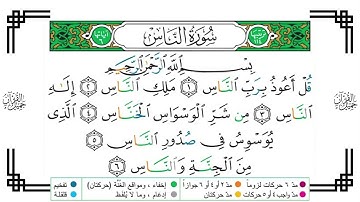 سُورَةُ النَّاسِ
بِسْمِ اللَّهِ الرَّحْمَٰنِ الرَّحِيمِ
قُلْ أَعُوذُ بِرَبِّ النَّاسِ ١ مَلِكِ النَّاسِ ٢ إِلَٰهِ
النَّاسِ ٣ مِن شَرِّ الْوَسْوَاسِ الْخَنَّاسِ ٤ الَّذِي
يُوَسْوِسُ فِي صُدُورِ النَّاسِ ٥
مِنَ الْجِنَّةِ وَالنَّاسِ ٦
مدّ ٦ حركات لزوماً مدّ ٢ أو ٤ أو ٦ جوازاً إخفاء، ومواقع الغنّة (حركتان) تفخيم
مدّ واجب ٤ أو ٥ حركات مدّ حركتان إدغام، وما لا يُلفظ قلقلة